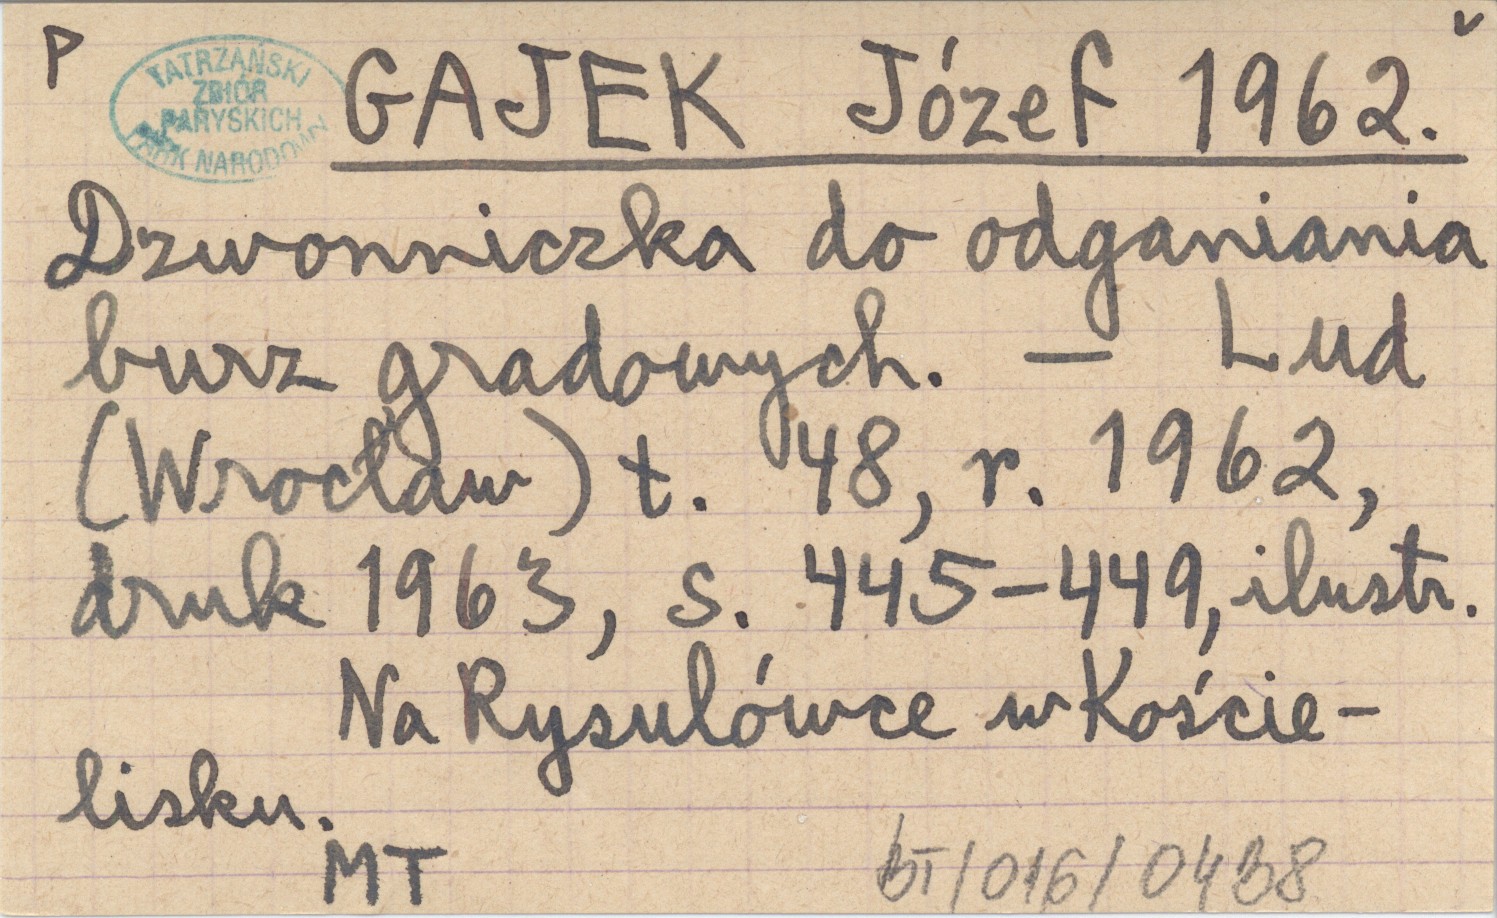 P
v
TATRZAŃSKI
ZBIÓR
PARYSKICH
PARK NARODOWY
GAJEK Józef 1962.
Dzwonniczka do odganiania
burz gradowych. — Lud
(Wrocław) t. 48, r. 1962,
druk 1963, s. 445-449, ilustr.
Na Rysulówce w Koście-
lisku.
MT
bT/016/0438